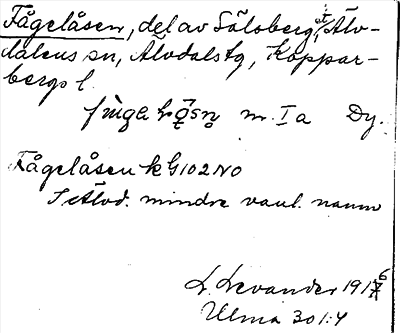 Fågelåsen, del av Sälsberg, i Älv-
dalens sn, Älvdals tg, Koppar-
bergs l.
m. I a Dy.
Fågelåsen k G 102 NO
I Älvd. mindre vanl. namn
L. Levander 1916
Ulma 301:4